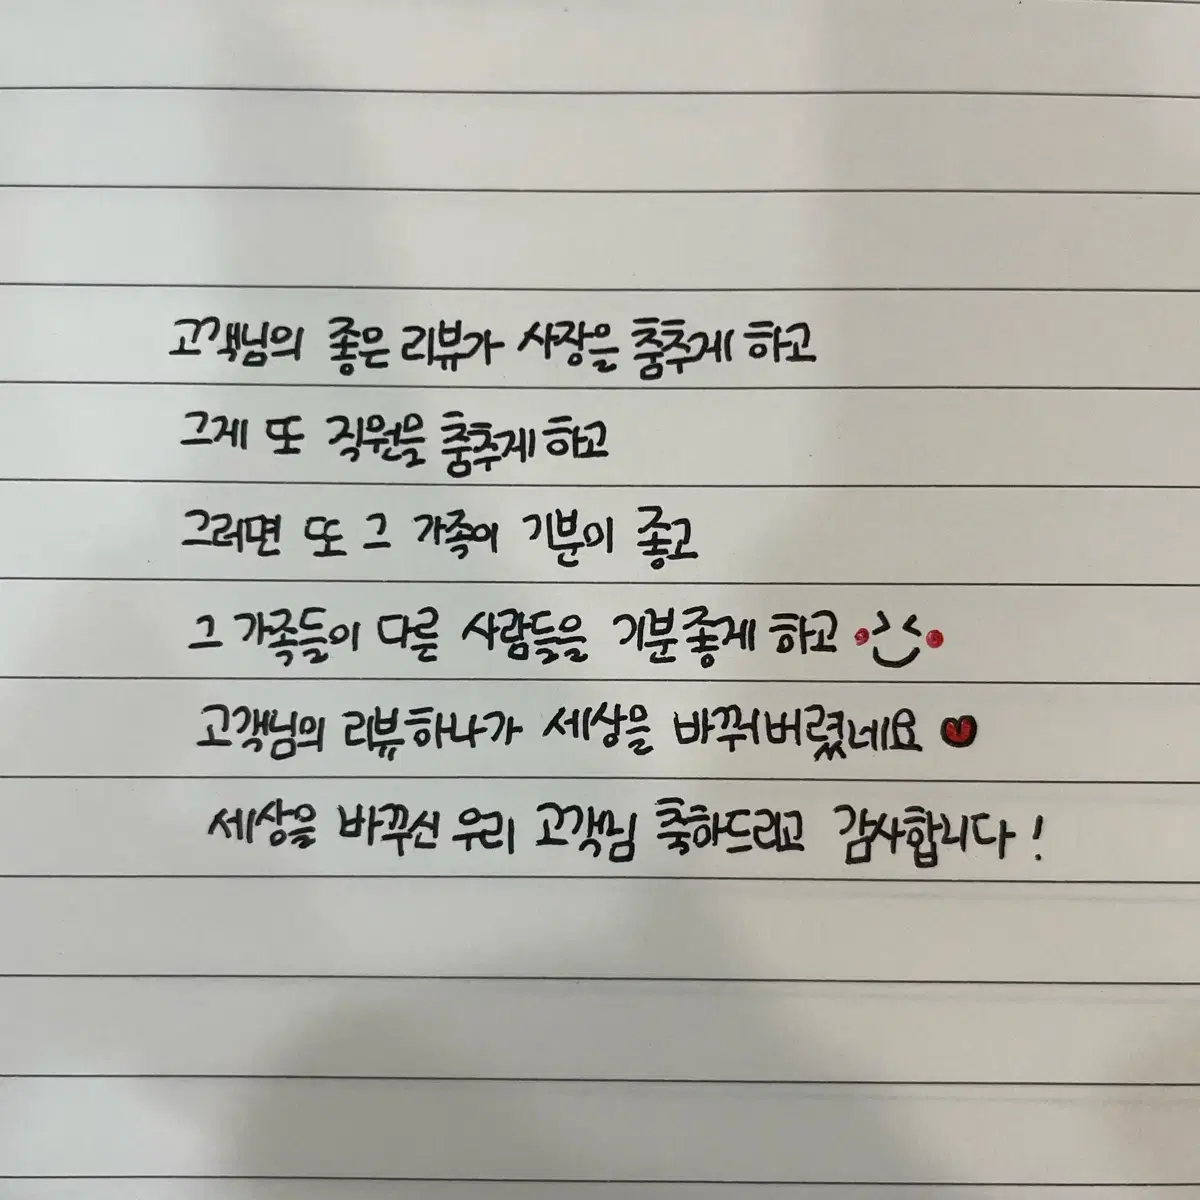 고객님의 좋은 리뷰가 사장을 춤추게 하고
그게 또 직원을 춤추게 하고
그러면 또 그 가족이 기분이 좋고
그 가족들이 다른 사람들을 기분좋게 하고
고객님의 리뷰하나가 세상을 바꿔버렸네요
세상을 바꾸신 우리 고객님 축하드리고 감사합니다!